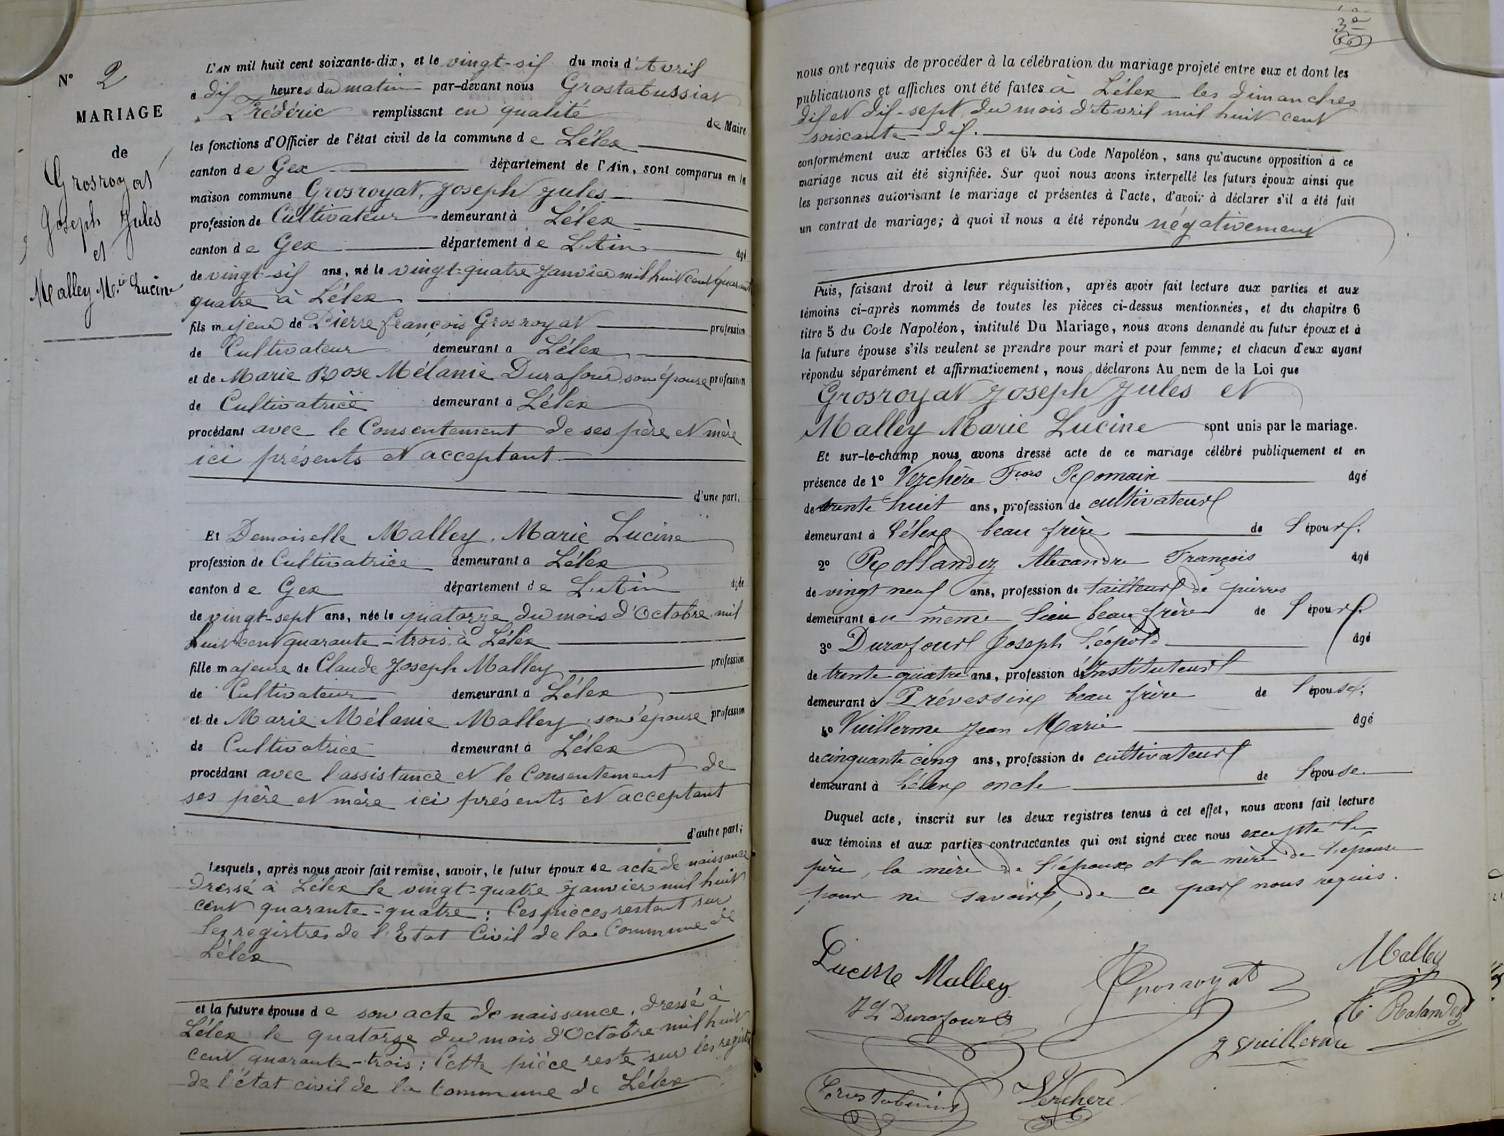 N° 2
MARIAGE
de
Grosroyat
Joseph Jules
et
Malley M.ie Lucine
L'AN mil huit cent soixante-dix, et le vingt-six du mois d'Avril
à dix heures du matin par-devant nous Grostabussiat
Frédéric remplissant en qualité de Maire
les fonctions d'Officier de l'état civil de la commune de Lélex
canton de Gex département de l'Ain, sont comparus en la
maison commune Grosroyat, Joseph Jules
profession de Cultivateur demeurant à Lélex
canton de Gex département de L'Ain âgé
de vingt-six ans, né le vingt-quatre Janvier mil huit cent quarante
quatre à Lélex
fils majeur de Pierre françois Grosroyat profession
de Cultivateur demeurant à Lélex
et de Marie Rose Mélanie Durafour, son épouse profession
de Cultivatrice demeurant à Lélex
procédant avec le Consentement de ses père et mère
ici présents et acceptant
d'une part.
Et Demoiselle Malley, Marie Lucine
profession de Cultivatrice demeurant à Lélex
canton de Gex département de L'Ain âgée
de vingt-sept ans, née le quatorze du mois d'Octobre mil
huit cent quarante-trois à Lélex
fille majeure de Claude Joseph Malley profession
de Cultivateur demeurant à Lélex
et de Marie Mélanie Malley, son épouse profession
de Cultivatrice demeurant à Lélex
procédant avec l'assistance et le Consentement de
ses père et mère ici présents et acceptant
d'autre part;
Lesquels, après nous avoir fait remise, savoir, le futur époux de acte de naissance
dressé à Lélex le vingt-quatre Janvier mil huit
cent quarante-quatre; Ces pièces restent sur
les registres de l'Etat Civil de la Commune de
Lélex
et la future épouse de son acte de naissance, dressé à
Lélex le quatorze du mois d'Octobre mil huit
cent quarante-trois; Cette pièce reste sur les registres
de l'état civil de la Commune de Lélex
nous ont requis de procéder à la célébration du mariage projeté entre eux et dont les
publications et affiches ont été faites à Lélex les dimanches
dix et dix-sept du mois d'Avril mil huit cent
soixante-dix.
conformément aux articles 63 et 64 du Code Napoléon, sans qu'aucune opposition à ce
mariage nous ait été signifiée. Sur quoi nous avons interpellé les futurs époux ainsi que
les personnes autorisant le mariage et présentes à l'acte, d'avoir à déclarer s'il a été fait
un contrat de mariage; à quoi il nous a été répondu négativement
Puis, faisant droit à leur réquisition, après avoir fait lecture aux parties et aux
témoins ci-après nommés de toutes les pièces ci-dessus mentionnées, et du chapitre 6
titre 5 du Code Napoléon, intitulé Du Mariage, nous avons demandé au futur époux et à
la future épouse s'ils veulent se prendre pour mari et pour femme; et chacun d'eux ayant
répondu séparément et affirmativement, nous déclarons Au nom de la Loi que
Grosroyat Joseph Jules et
Malley Marie Lucine sont unis par le mariage.
Et sur-le-champ nous avons dressé acte de ce mariage célébré publiquement et en
présence de 1° Verchère Fçois Romain âgé
de trente huit ans, profession de cultivateur
demeurant à Lélex beau frère de l'époux.
2° Rollandez Alexandre François âgé
de vingt neuf ans, profession de tailleur de pierres
demeurant au même lieu beau frère de l'époux.
3° Durafour Joseph Léopold âgé
de trente quatre ans, profession d'Instituteur
demeurant à Prévessin beau frère de l'épouse.
4° Vuillerme Jean Marie âgé
de cinquante cinq ans, profession de cultivateur
demeurant à Lélex oncle de l'épouse
Duquel acte, inscrit sur les deux registres tenus à cet effet, nous avons fait lecture
aux témoins et aux parties contractantes qui ont signé avec nous excepté le
père, la mère de l'époux et la mère de l'épouse
pour ne savoir, de ce part nous requis.
Lucine Malley
Grosroyat
Malley
J L Durafour
A. Rolandez
J Vuillerme
Verchere